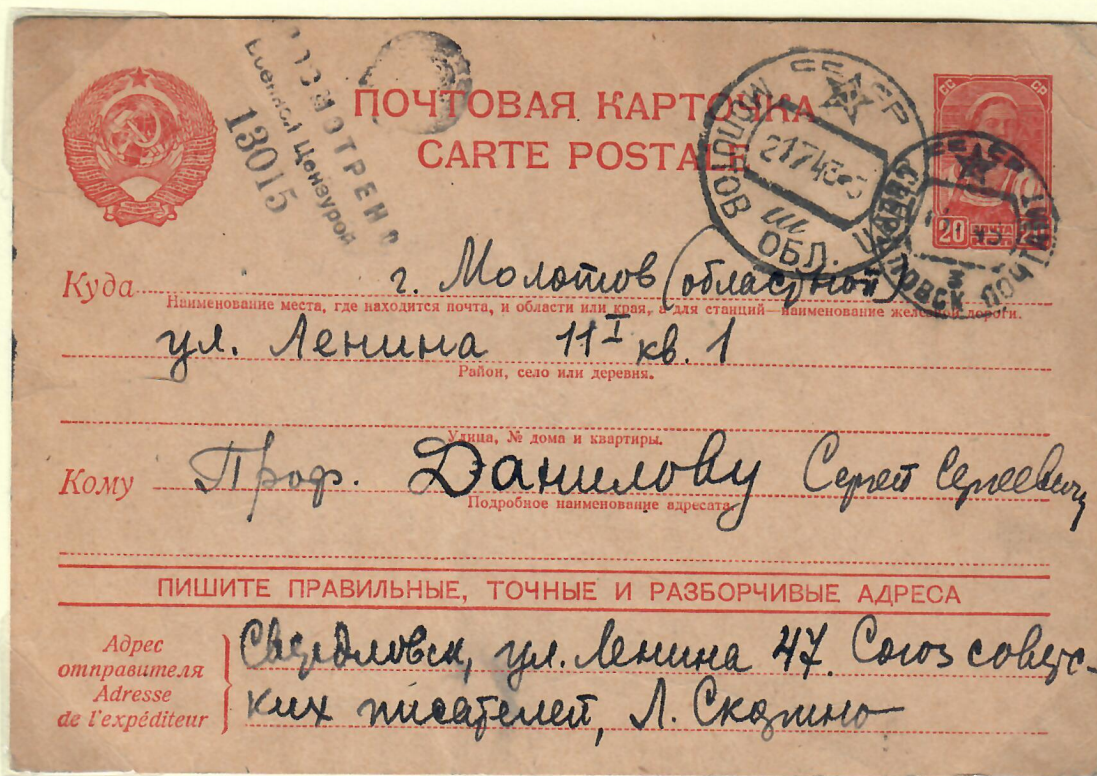 ПРОСМОТРЕНО
Военной Цензурой
13015
ПОЧТОВАЯ КАРТОЧКА
CARTE POSTALE
СССР
МОЛОТОВ ОБЛ.
21 7 43
СС СР
20 ПОЧТА 20
СВЕРДЛОВСК ПОЧТАМТ
Куда г. Молотов (областной)
Наименование места, где находится почта, и области или края, а для станций—наименование железной дороги.
ул. Ленина 11 I кв. 1
Район, село или деревня.
Улица, № дома и квартиры.
Кому Проф. Данилову Сергей Сергеевичу
Подробное наименование адресата.
ПИШИТЕ ПРАВИЛЬНЫЕ, ТОЧНЫЕ И РАЗБОРЧИВЫЕ АДРЕСА
Адрес отправителя
Adresse de l'expéditeur
Свердловск, ул. Ленина 47. Союз советс-
ких писателей, Л. Скорино